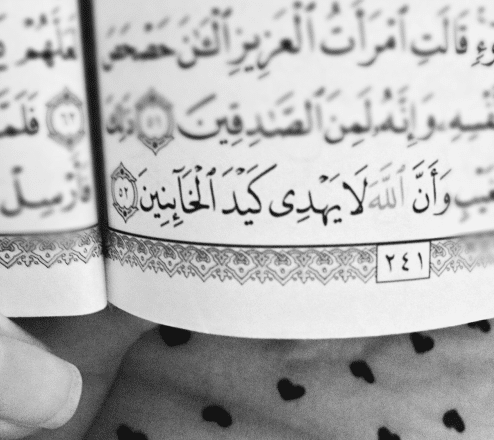 قَالَتِ ٱمْرَأَتُ ٱلْعَزِيزِ ٱلْـَٰٔنَ حَصْحَصَ
وَإِنَّهُۥ لَمِنَ ٱلصَّـٰدِقِينَ ٥١ ذَٰلِكَ
وَأَنَّ ٱللَّهَ لَا يَهْدِى كَيْدَ ٱلْخَآئِنِينَ ٥٢
٢٤١